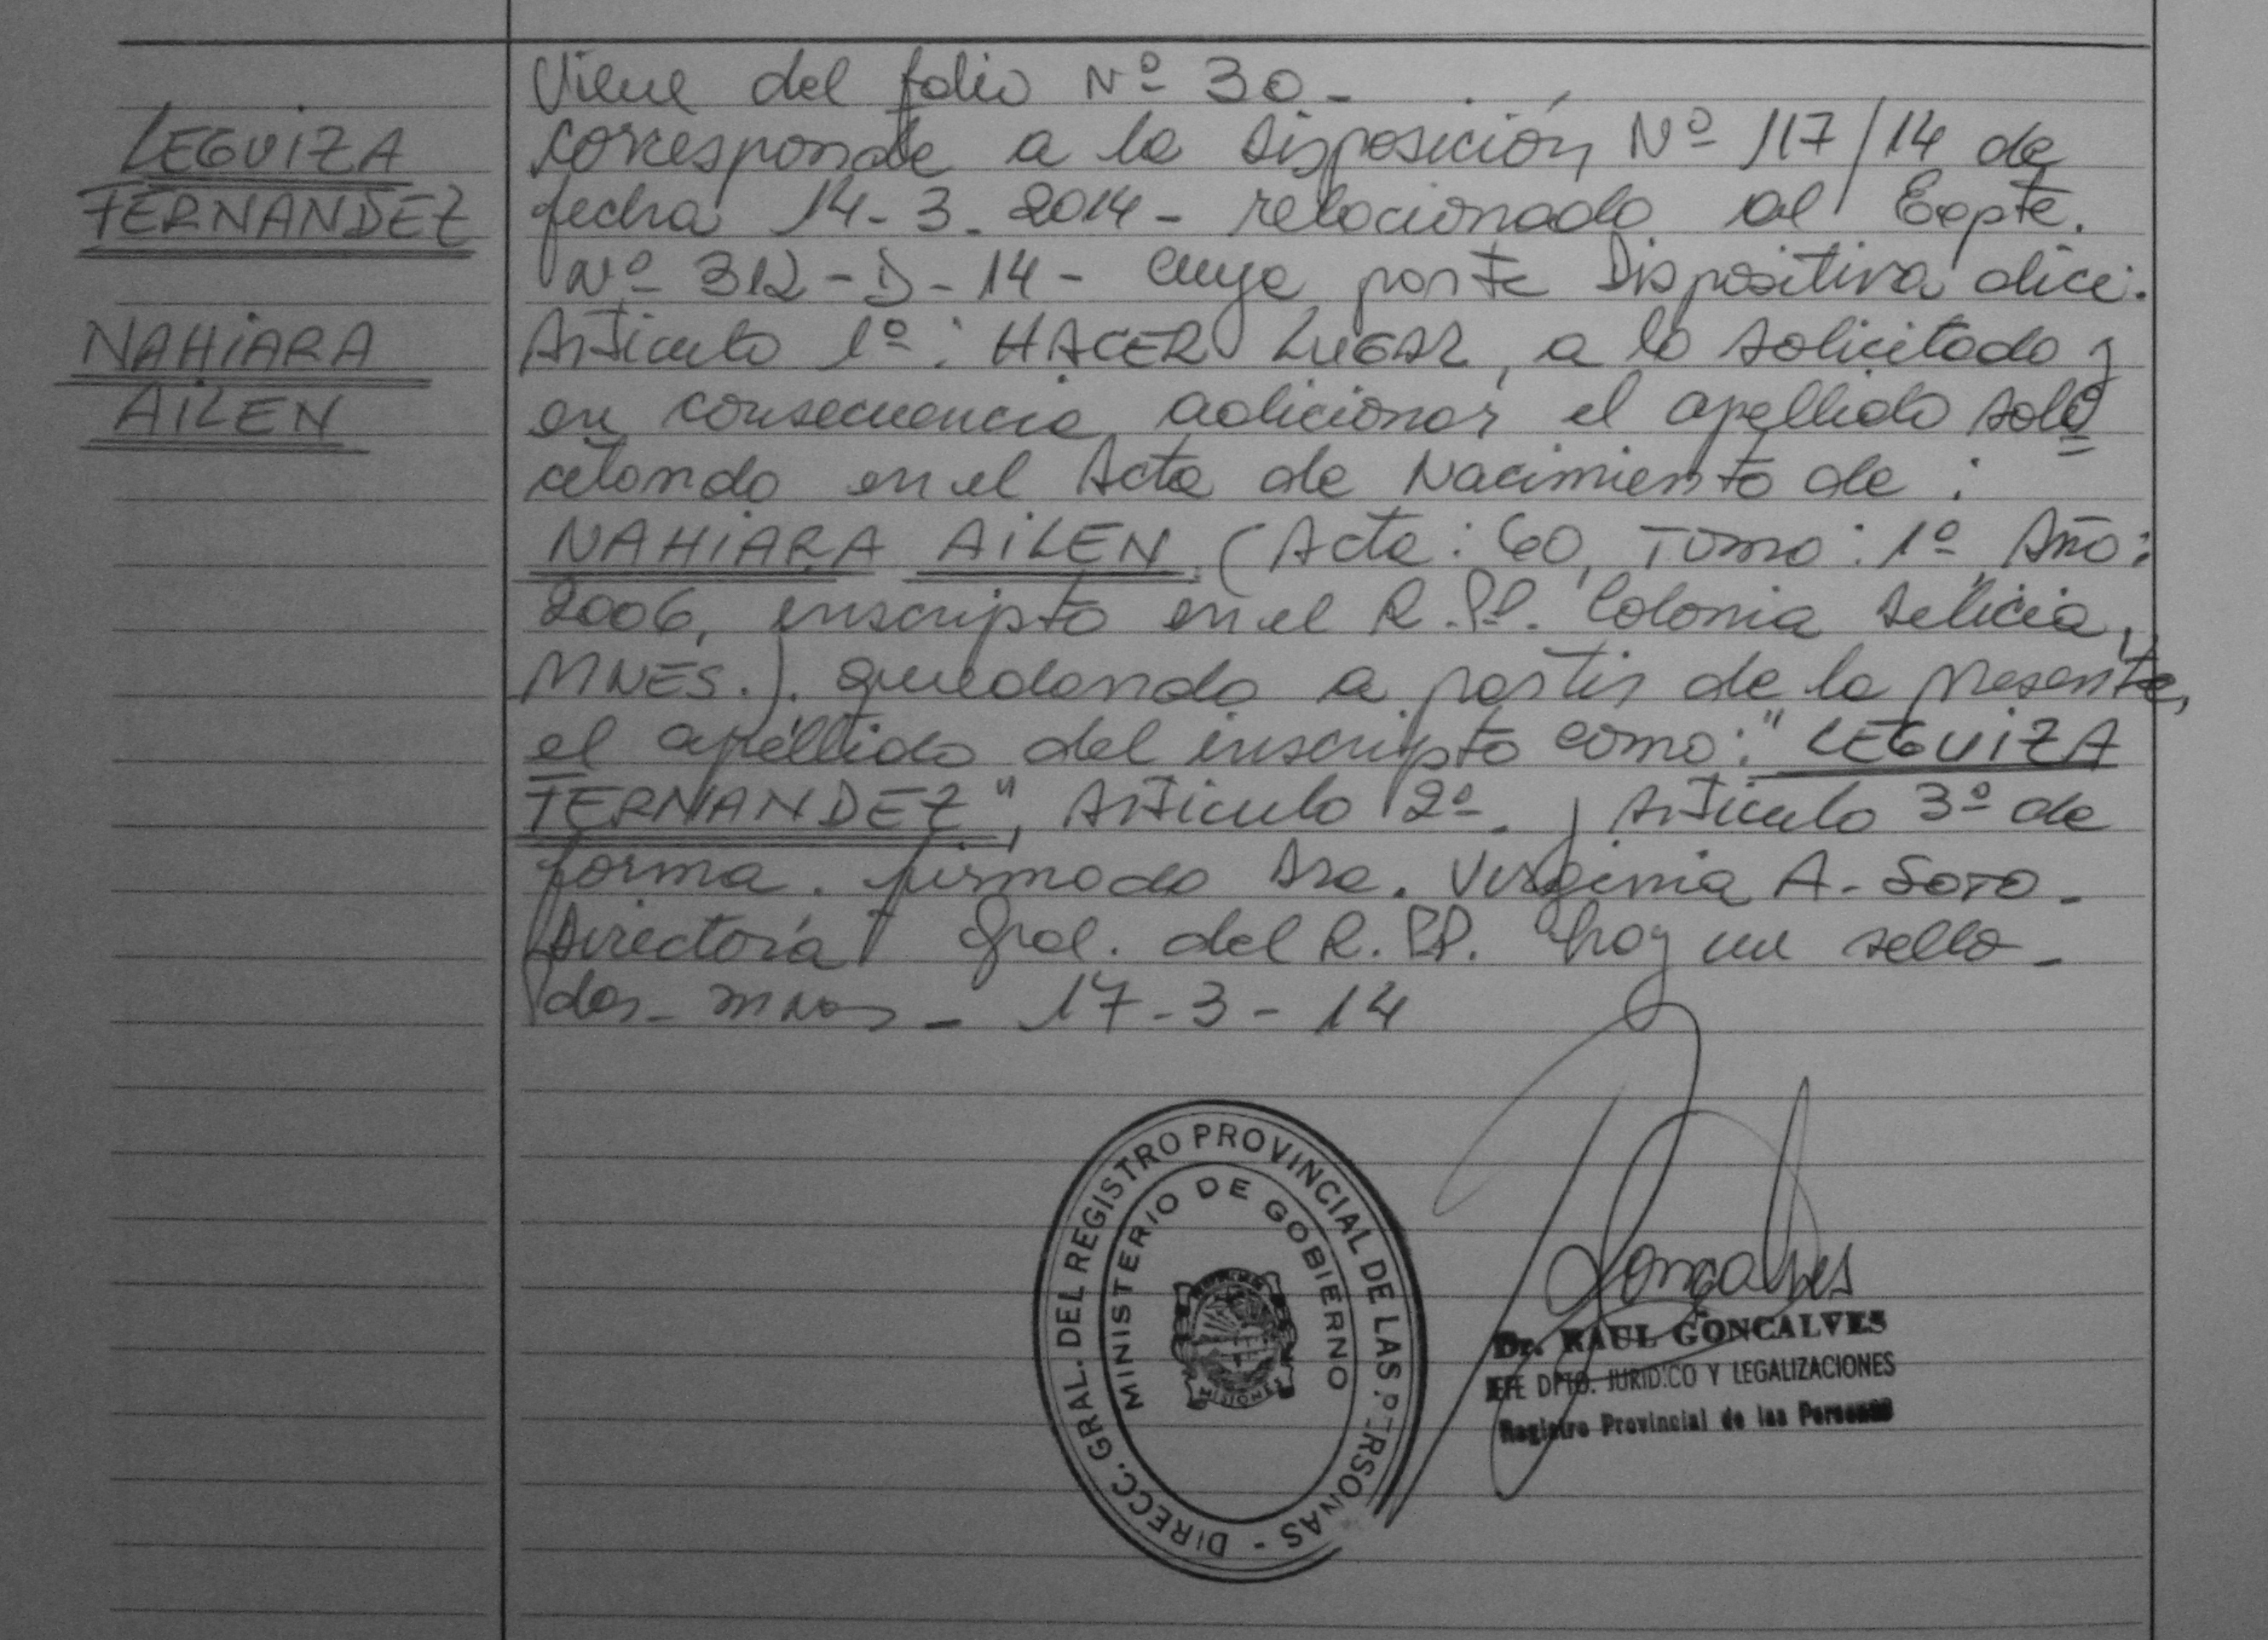 LEGUIZA
FERNANDEZ
NAHIARA
AILEN
Viene del folio Nº 30-
Corresponde a la Disposición Nº 117/14 de
fecha 14-3-2014- relacionado al Expte.
Nº 312-D-14- cuya parte Dispositiva dice:
Articulo 1º: HACER LUGAR, a lo solicitado y
en consecuencia adicionar el apellido soli
citando en el Acta de Nacimiento de:
NAHIARA AILEN (Acta: 60, Tomo: 1º, Año:
2006, inscripto en el R.PP. Colonia Delicia,
MNES.). quedando a partir de la presente,
el apellido del inscripto como: "LEGUIZA
FERNANDEZ", Articulo 2º. y Articulo 3º de
forma. firmado Dra. Virginia A. SOTO-
Directora Gral. del R.PP. hay un sello-
17-3-14
DIRECC. GRAL. DEL REGISTRO PROVINCIAL DE LAS PERSONAS -
MINISTERIO DE GOBIERNO
MISIONES
Goncalves
Dr. RAUL GONCALVES
JEFE DPTO. JURIDICO Y LEGALIZACIONES
Registro Provincial de las Personas